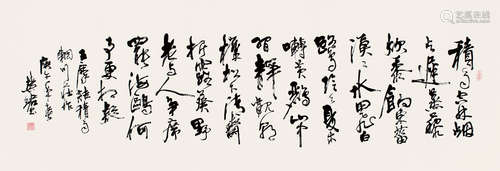 積雨空林烟
火遲蒸藜
炊黍餉東菑
漠漠水田飛白
鷺陰陰夏木
囀黃鸝山
中習靜觀朝
槿松下清齋
折露葵野
老與人爭席
罷海鷗何
事更相疑
王摩詰積雨
輞川莊作